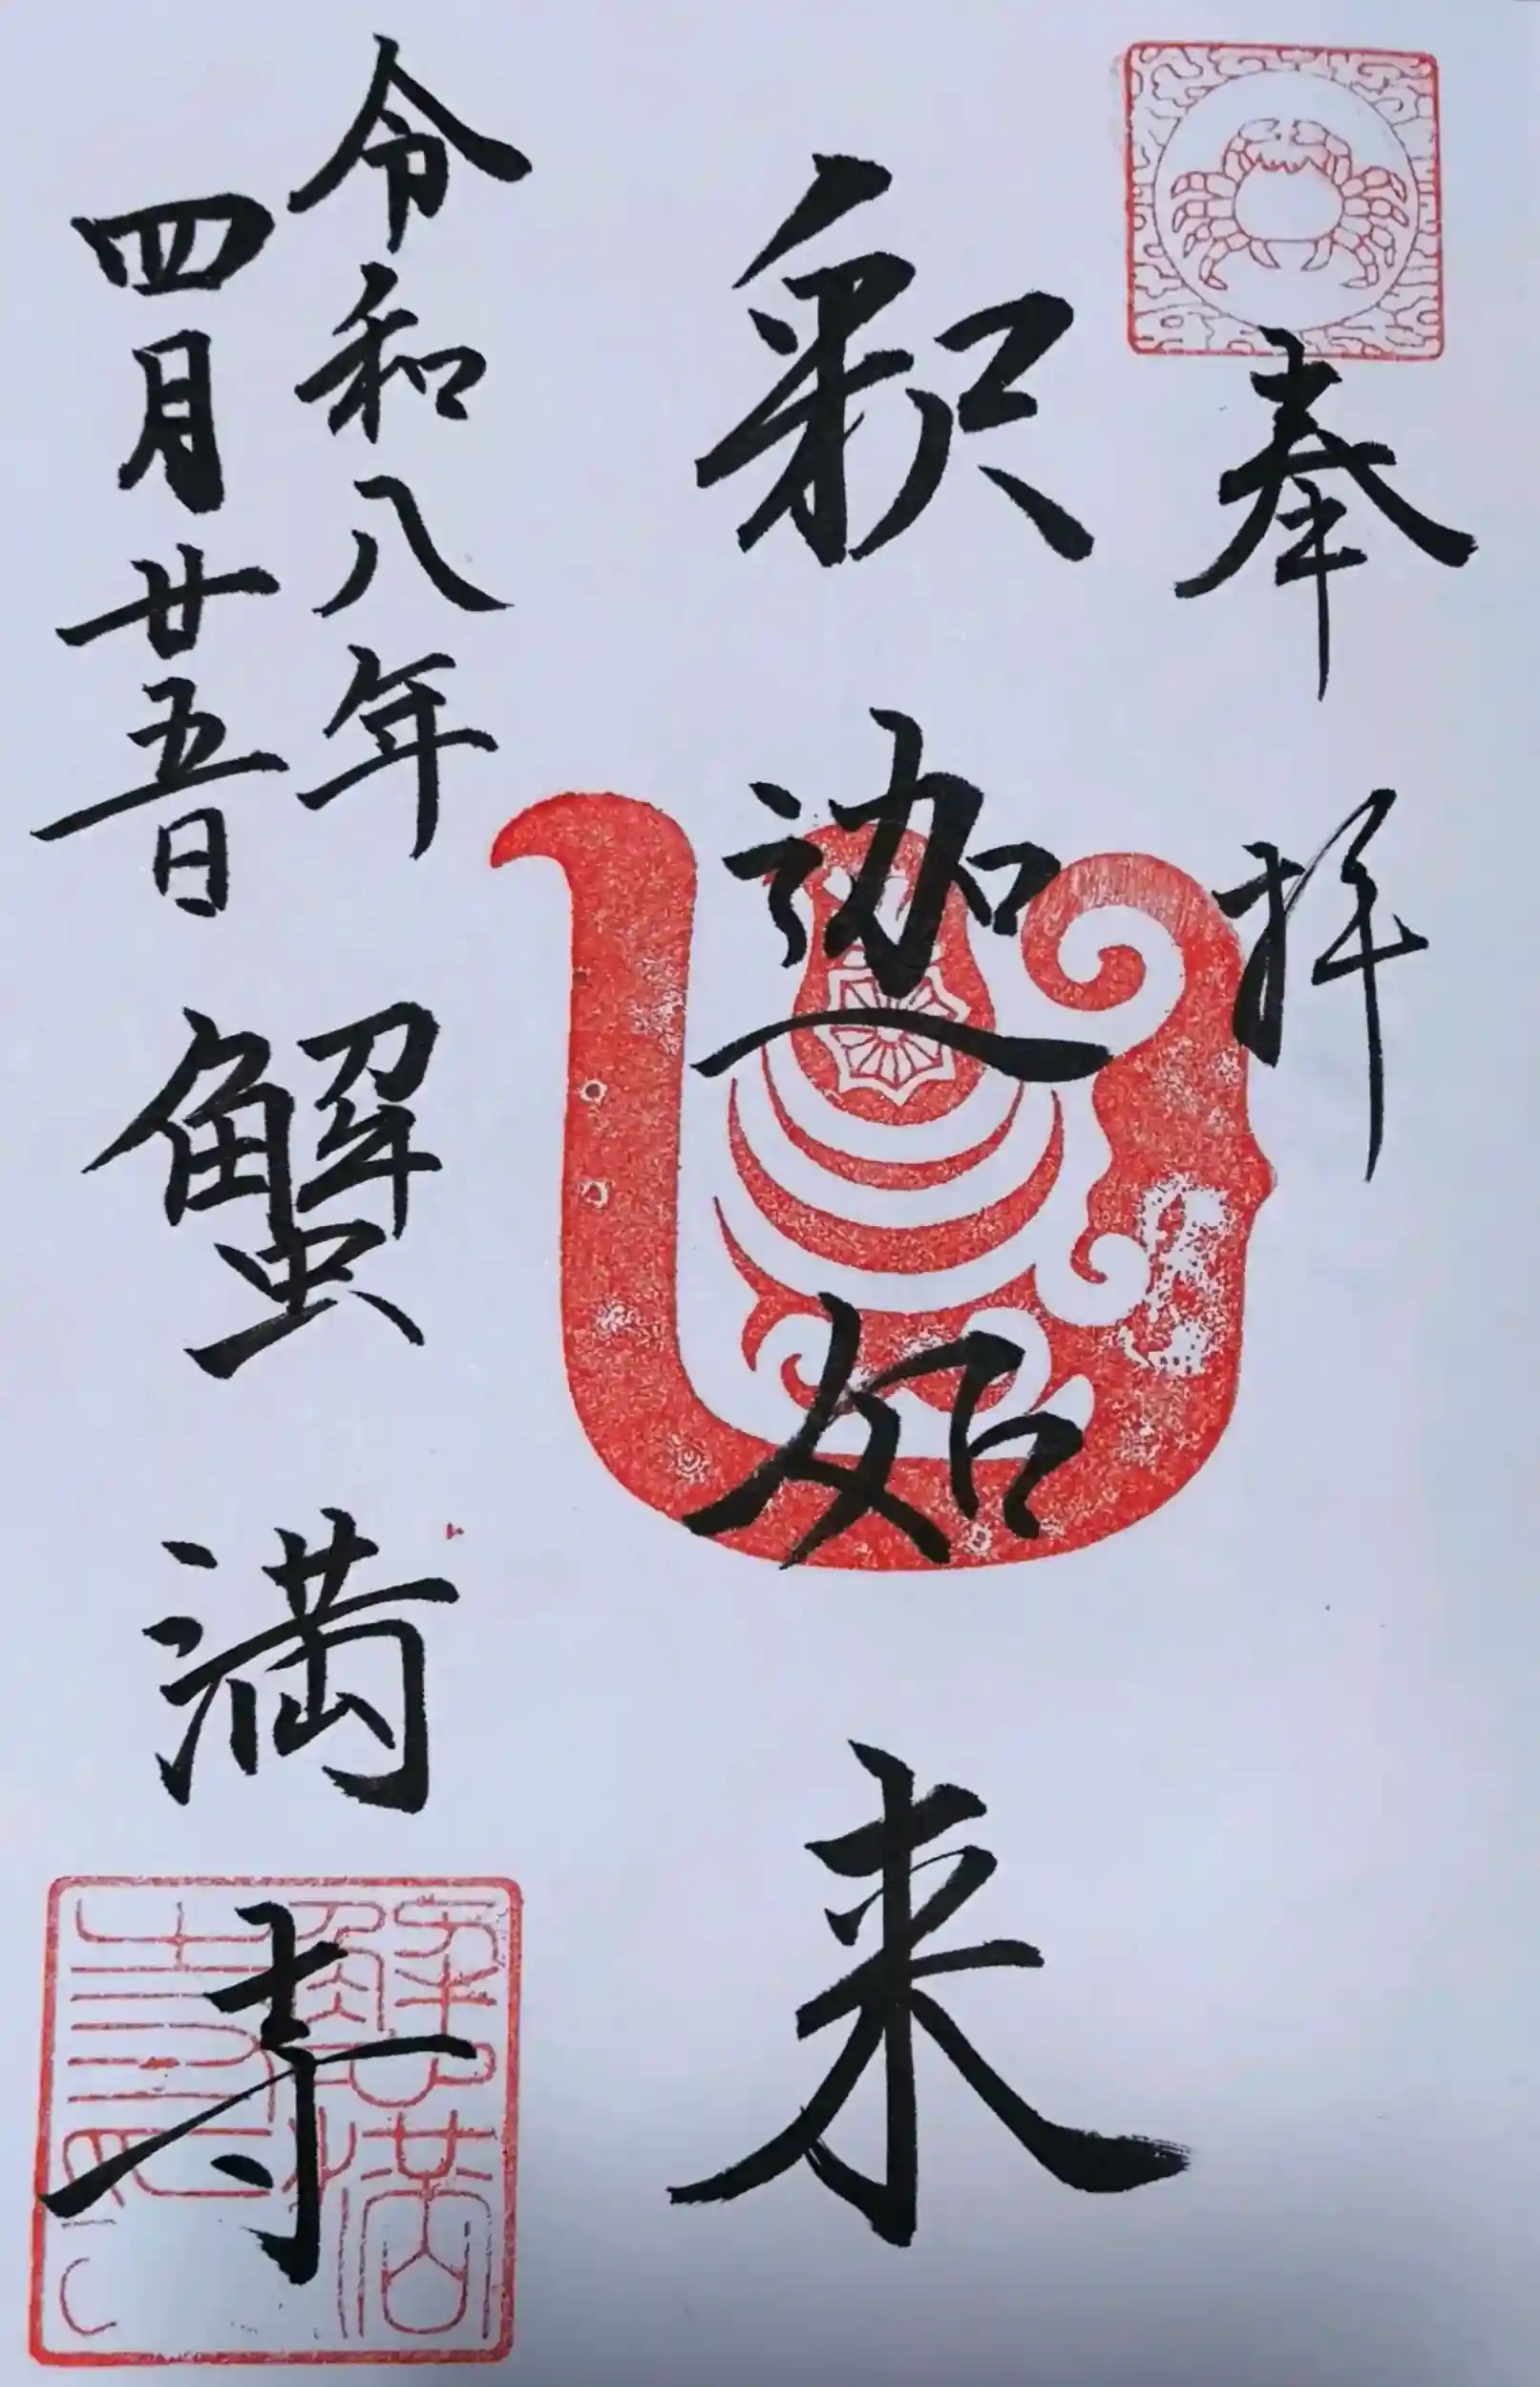 奉拝
釈迦如来
令和八年
四月廿五日
蟹満寺
蟹満寺印